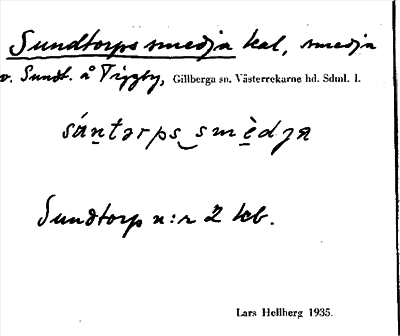 Sundtorps smedja kal, smedja
v. Sundt. å Tiggby, Gillberga sn. Västerrekarne hd. Sdml. l.
sán̲tərps‿smèdja
Sundtorp n:r 2 kb.
Lars Hellberg 1935.